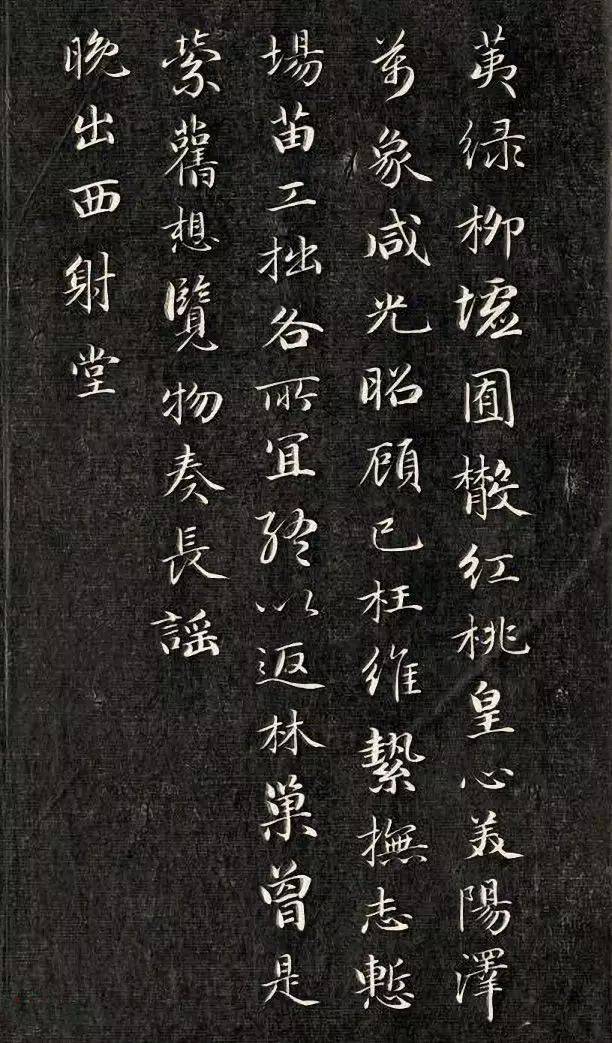 荑绿柳墟囿散红桃皇心美陽澤
萬象咸光昭顾已枉維縶撫志慙
場苗工拙各所宜終以返林巢曾是
縈舊想覽物奏長謡
晚出西射堂